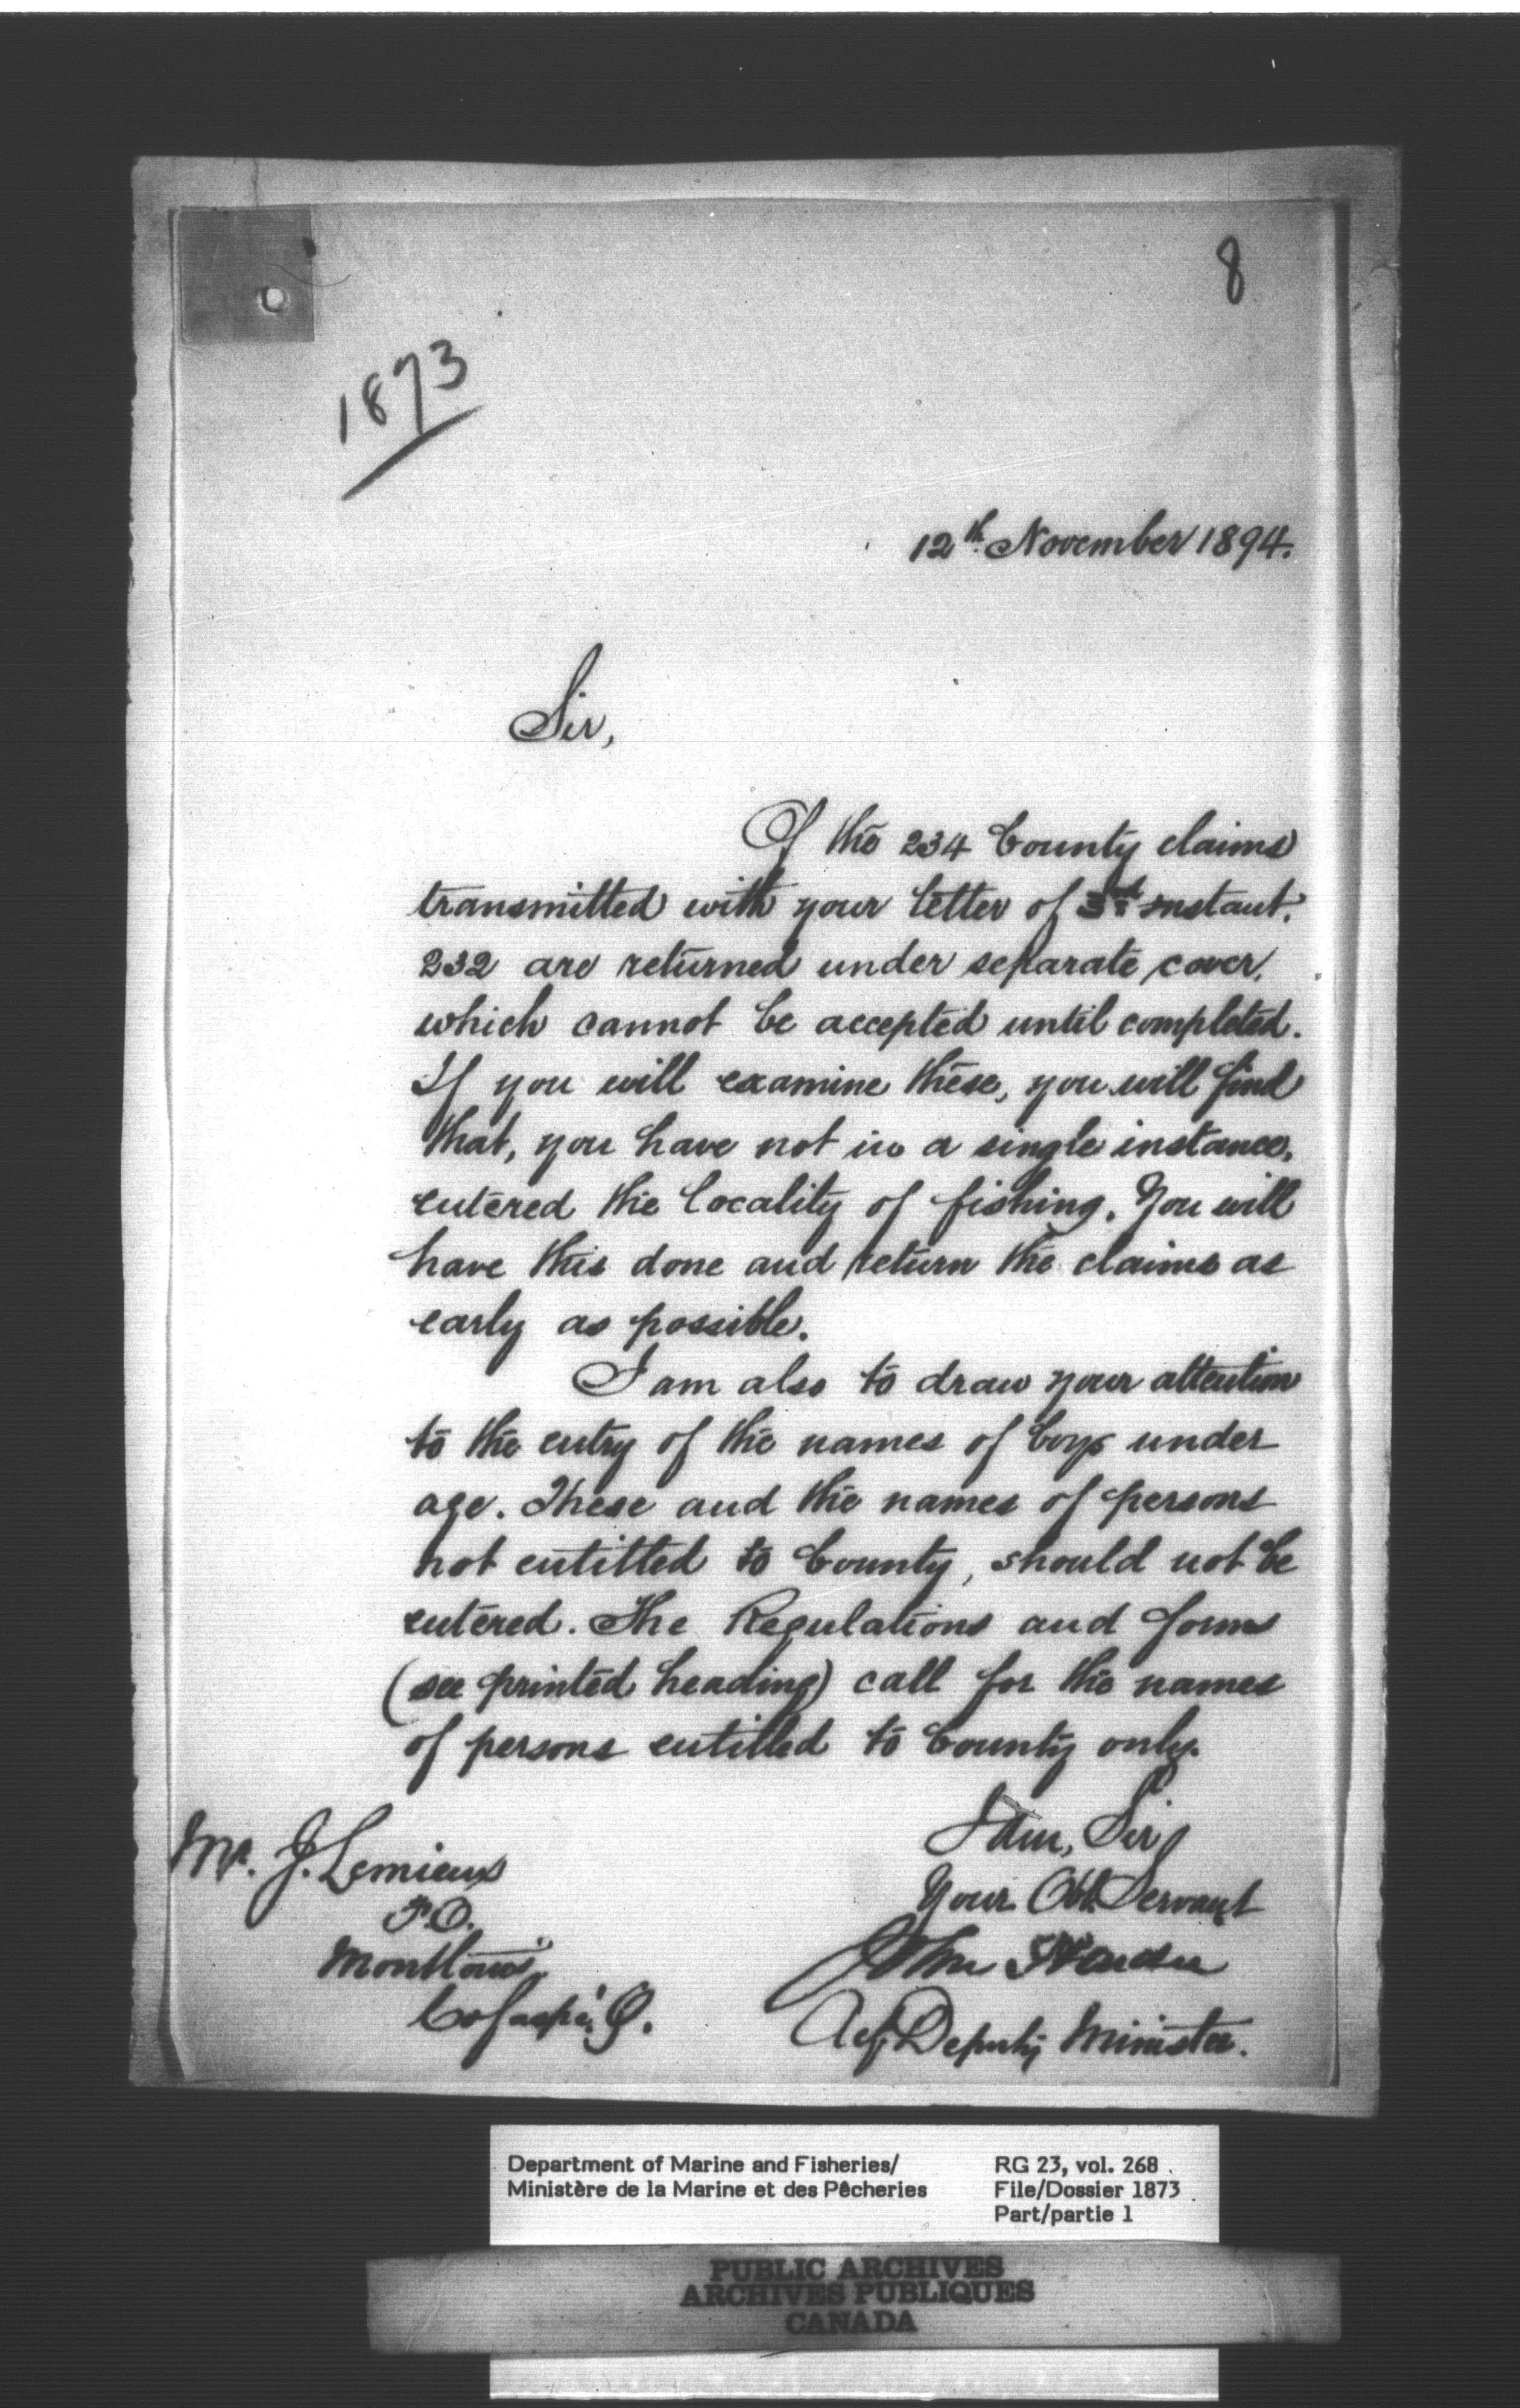 8
1873
12th. November 1894.
Sir,
Of the 234 bounty claims
transmitted with your letter of 3rd instant,
232 are returned under separate cover,
which cannot be accepted until completed.
If you will examine these, you will find
that, you have not in a single instance,
entered the locality of fishing. You will
have this done and return the claims as
early as possible.
I am also to draw your attention
to the entry of the names of boys under
age. These and the names of persons
not entitled to bounty, should not be
entered. The Regulations and forms
(see printed heading) call for the names
of persons entitled to bounty only.
I am, Sir,
Your Obt. Servant
John Hardie
Actg Deputy Minister.
Mr. J. Lemieux
F.O.
Mont Louis
Co Gaspé, Q.
Department of Marine and Fisheries/
Ministère de la Marine et des Pêcheries
RG 23, vol. 268
File/Dossier 1873
Part/partie 1
PUBLIC ARCHIVES
ARCHIVES PUBLIQUES
CANADA